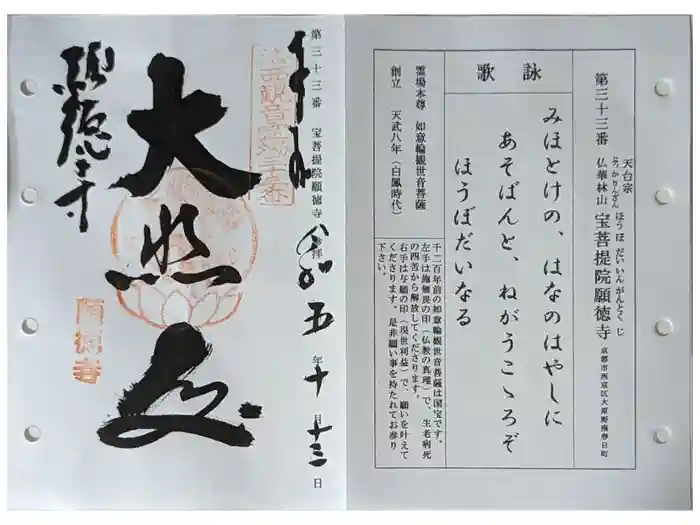 第三十三番
天台宗
仏華林山 宝菩提院願徳寺
ぶっかりんざん ほうぼだいいんがんとくじ
京都市西京区大原野南春日町
詠歌
みほとけの、はなのはやしに
あそばんと、ねがうこゝろぞ
ほうぼだいなる
霊場本尊 如意輪観世音菩薩
創立 天武八年(白鳳時代)
千二百年前の如意輪観世音菩薩は国宝です。
左手は施無畏の印(仏教の真理)で、生老病死
の四苦から解放してくださります。
右手は与願の印(現世利益)で、願いを叶えて
くださります。是非願い事を持たれてお参り
下さい。
第三十三番 宝菩提院願徳寺
奉拝
令和五年十月十三日
願徳寺
願徳寺